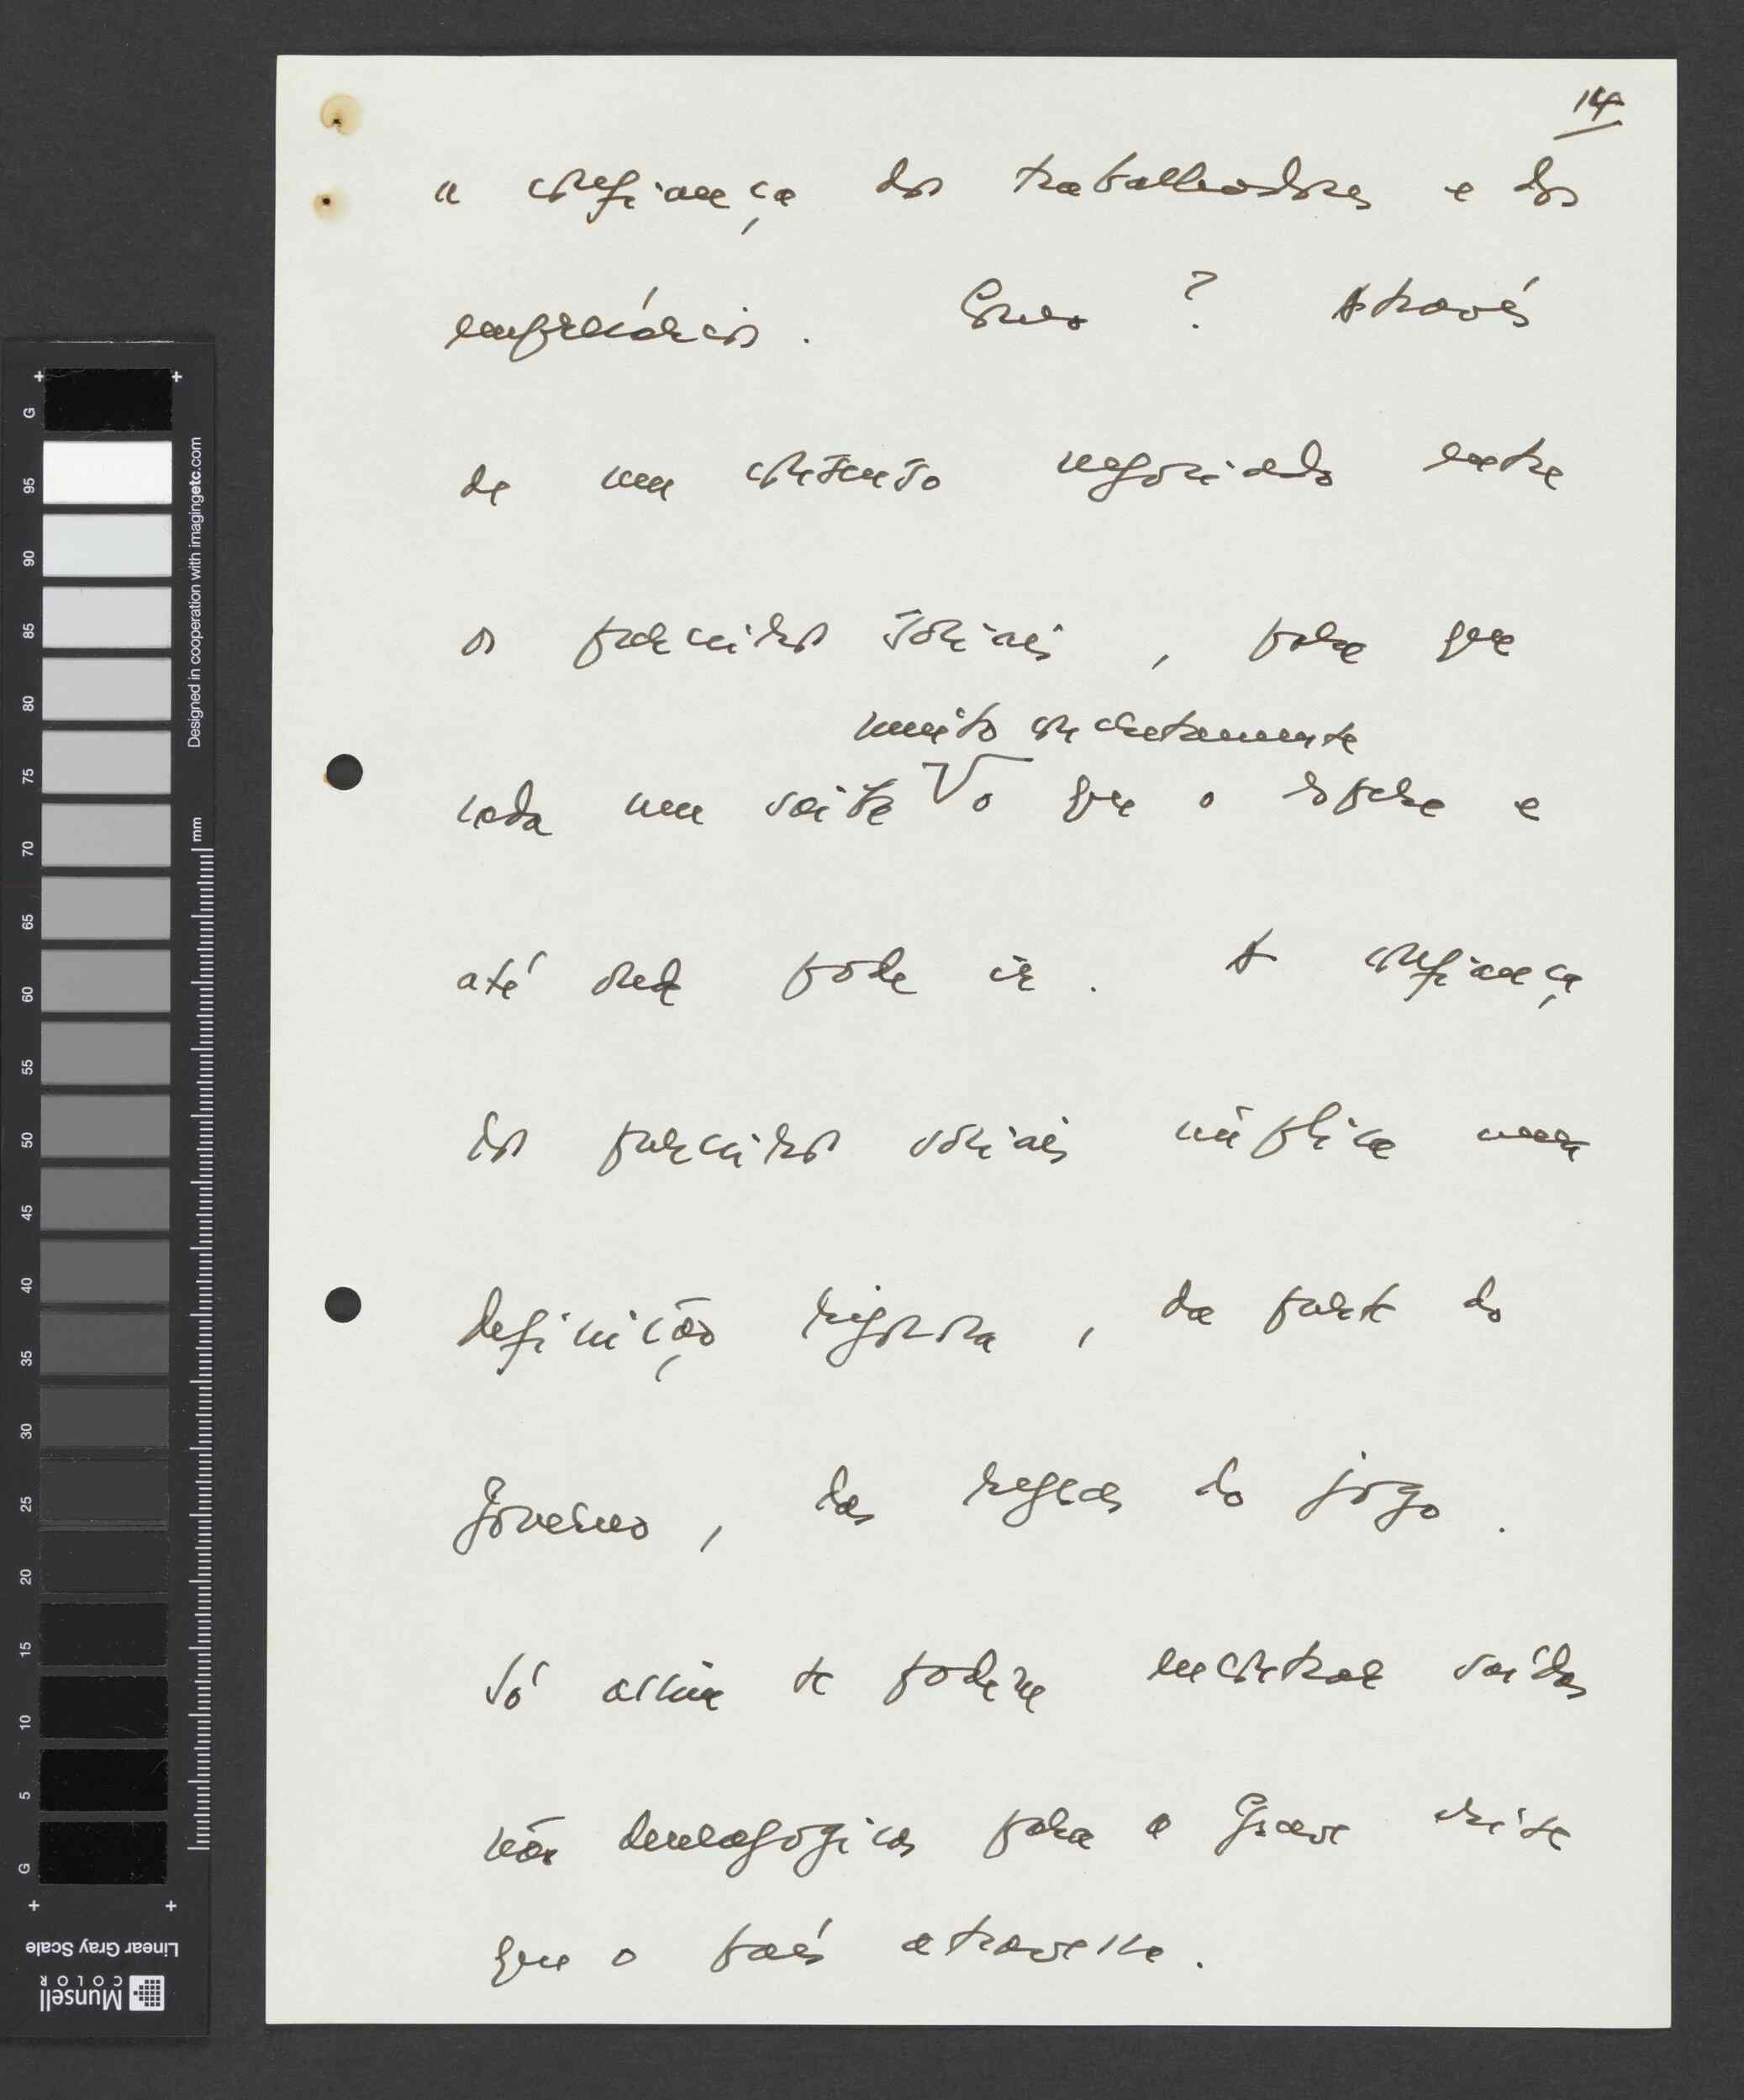 14
a confiança dos trabalhadores e dos
empresários. Como? Através
de um consenso negociado entre
os parceiros sociais, para que
muito concretamente
cada um saiba o que o espera e
até onde pode ir. A confiança
dos parceiros sociais implica uma
definição rigorosa, da parte do
Governo, das regras do jogo.
Só assim se poderá encontrar saídas
não demagógicas para a grave crise
que o país atravessa.
+ +
G
95
90
85
80
75
70
65
60
55
50
45
40
35
30
25
20
15
10
5
G
+ +
Designed in cooperation with imagingetc.com
mm
Linear Gray Scale
Munsell
COLOR